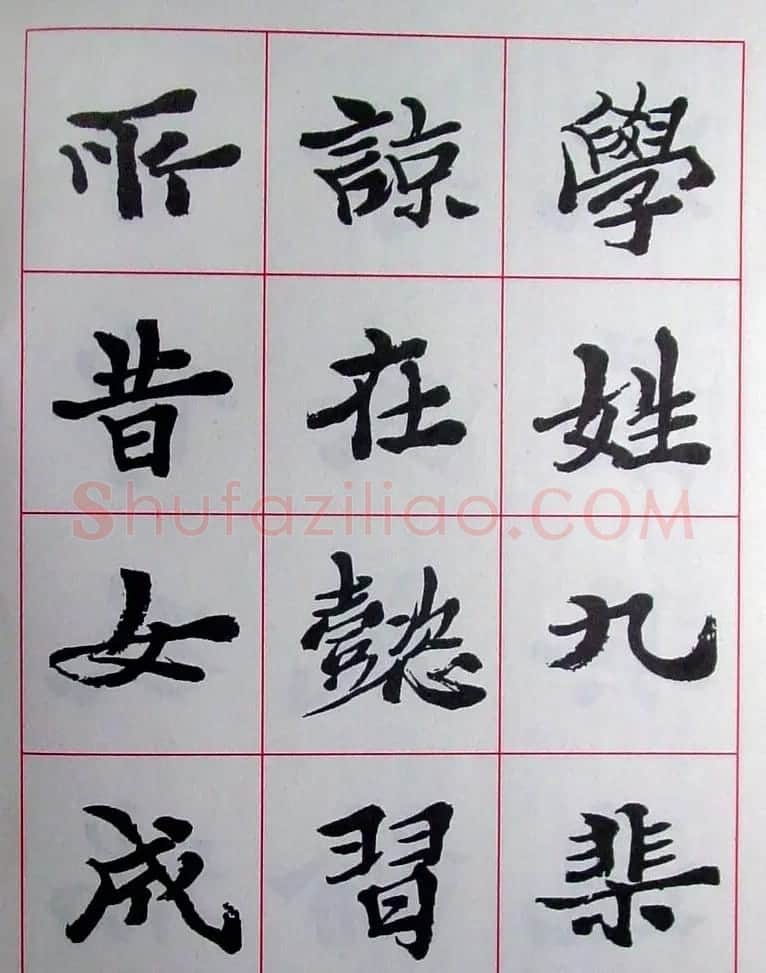 學姓九棐
諒在懿習
所昔女成
Shufaziliao.COM